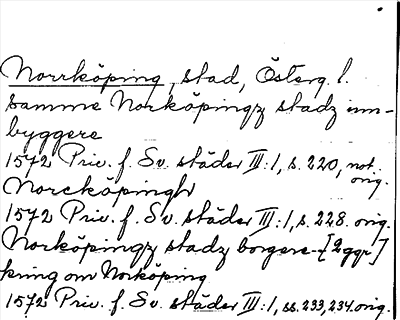 Norrköping, stad, Österg. l.
samme Norköpingz stadz inn-
byggere
1572 Priv. f. Sv. städer III:1, s. 220, not. orig.
Norcköpingh
1572 Priv. f. Sv. städer III:1, s. 228. orig.
Norköpingz stadz borgere [2 ggr]
kring om Norköping
1572 Priv. f. Sv. städer III:1, ss. 233, 234. orig.